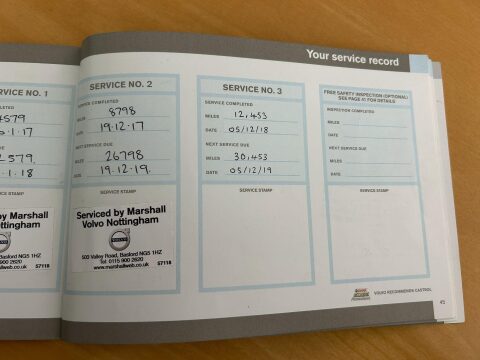 Your service record
SERVICE NO. 1
COMPLETED
4579
.1.17
SERVICE DUE
2579.
.1.18
SERVICE STAMP
by Marshall
Nottingham
Basford NG5 1HZ
900 2620
web.co.uk 57118
SERVICE NO. 2
SERVICE COMPLETED
MILES 8798
DATE 19.12.17
NEXT SERVICE DUE
MILES 26798
DATE 19.12.19.
SERVICE STAMP
Serviced by Marshall
Volvo Nottingham
VOLVO
500 Valley Road, Basford NG5 1HZ
Tel: 0115 900 2620
www.marshallweb.co.uk 57118
SERVICE NO. 3
SERVICE COMPLETED
MILES 12,453
DATE 05/12/18
NEXT SERVICE DUE
MILES 30,453
DATE 05/12/19
SERVICE STAMP
FREE SAFETY INSPECTION (OPTIONAL)
SEE PAGE 41 FOR DETAILS
INSPECTION COMPLETED
MILES
DATE
NEXT SERVICE DUE
MILES
DATE
SERVICE STAMP
VOLVO RECOMMENDS CASTROL
45